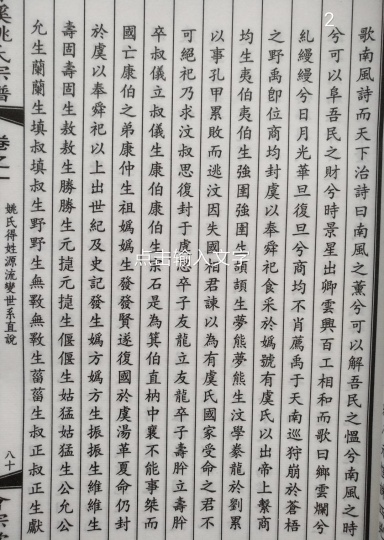 2
歌南風詩而天下治詩曰南風之薰兮可以解吾民之慍兮南風之時
兮可以阜吾民之財兮時景星出卿雲興百工相和而歌曰鄉雲爛兮
糺縵縵兮日月光華旦復旦兮商均不肖薦禹于天南巡狩崩於蒼梧
之野禹卽位商均封虞以奉舜祀食采於嬀號有虞氏以出帝上繫商
均生夷伯夷伯生強圉強圉生頡頡生夢熊夢熊生汶學豢龍於劉累
以事孔甲累敗而逃汶因失國相君諫以為有虞氏國家受命之君不
可絕祀乃求汶叔思復封于虞思卒子友龍立友龍卒子壽肸立壽肸
卒叔儀立叔儀生康伯康伯生石是為箕伯直柄中襄不能事桀而
國亡康伯之弟康仲生祖嬀嬀生發發賢遂復國於虞湯革夏命仍封
於虞以奉舜祀以上出世紀及史記發生嬀方嬀方生振振生維維生
壽固壽固生敖敖生勝勝生元㨗元㨗生偃偃生姑猛姑猛生公允公
允生蘭蘭生填叔填叔生野野生無斁無斁生菑菑生叔正叔正生獻
姚氏得姓源流變世系直說
八十
姚氏宗譜
卷之一
点击输入文字